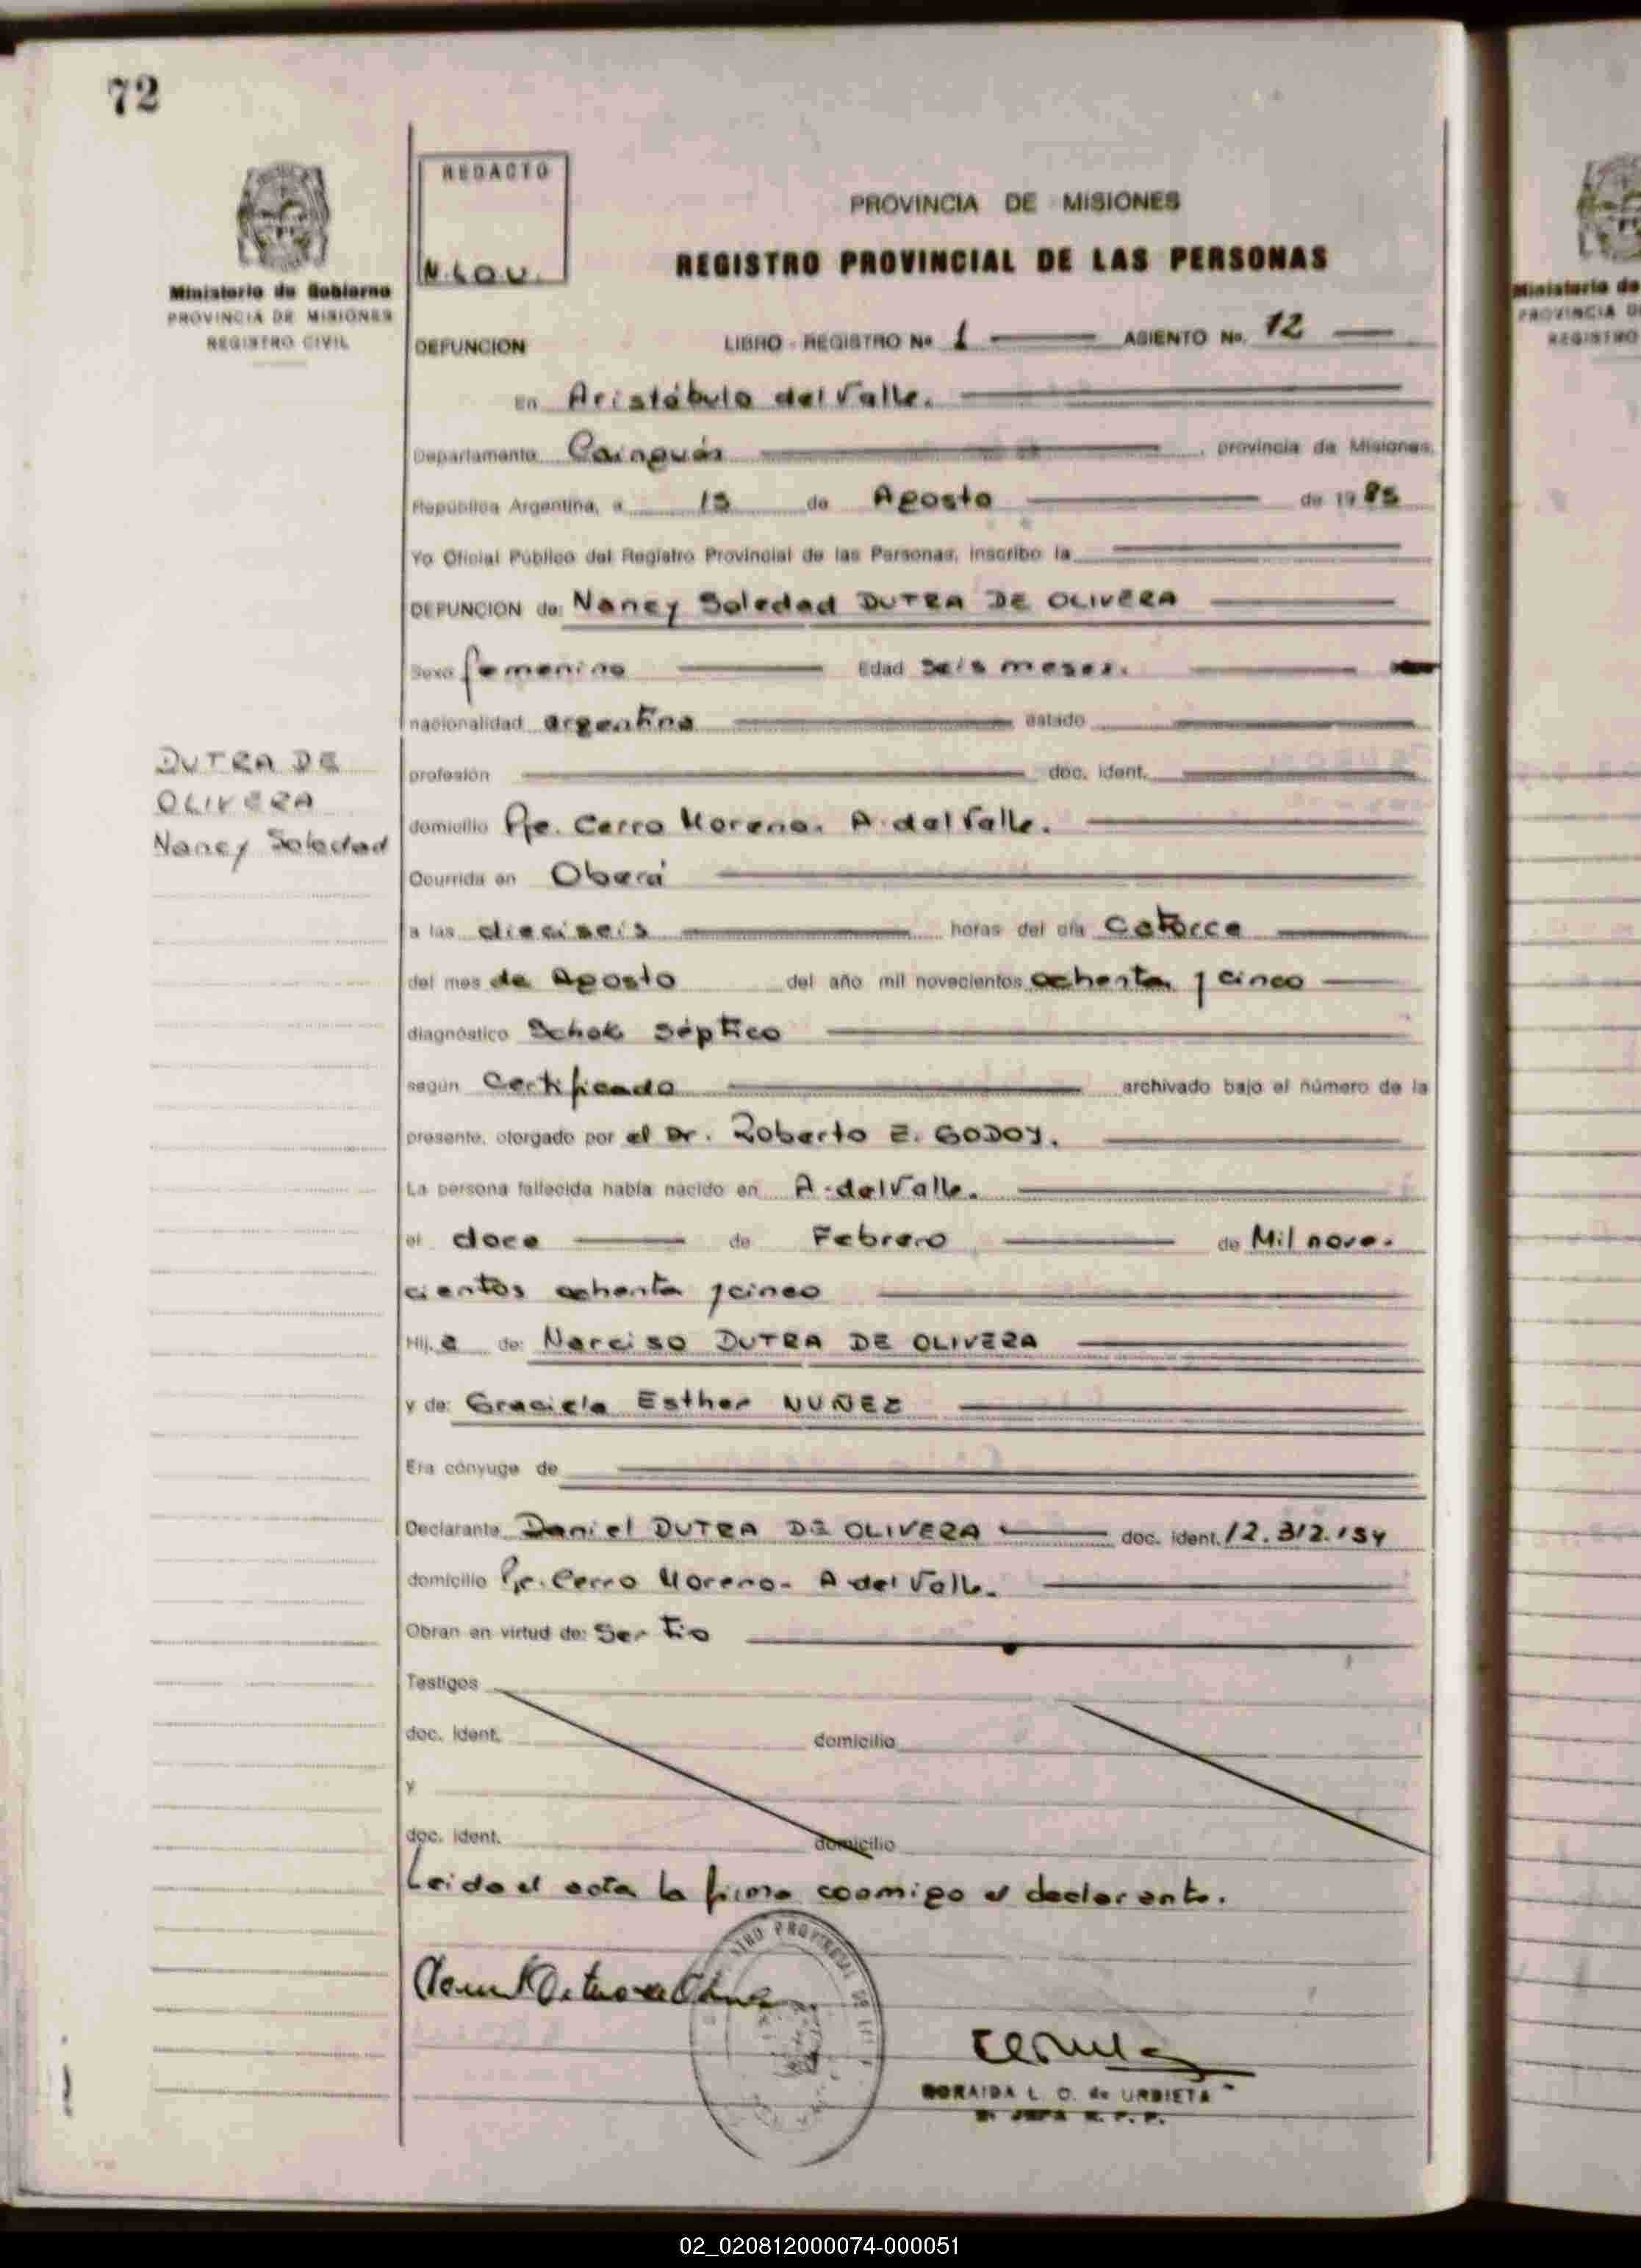 72
REDACTO
N.LOU.
Ministerio de Gobierno
PROVINCIA DE MISIONES
REGISTRO CIVIL
PROVINCIA DE MISIONES
REGISTRO PROVINCIAL DE LAS PERSONAS
DEFUNCION LIBRO - REGISTRO Nº 1 ASIENTO No. 12
En Aristóbulo del Valle.
Departamento Cainguás , provincia de Misiones,
República Argentina, a 15 de Agosto de 1985
Yo Oficial Público del Registro Provincial de las Personas, inscribo la
DEFUNCION de: Nancy Soledad DUTRA DE OLIVERA
Sexo femenino Edad seis meses.
nacionalidad argentina estado
DUTRA DE
OLIVERA
Nancy Soledad
profesión doc. ident.
domicilio Pje. Cerro Moreno. A. del Valle.
Ocurrida en Oberá
a las dieciseis horas del día Catorce
del mes de Agosto del año mil novecientos ochenta y cinco
diagnóstico Schok séptico
según Certificado archivado bajo el número de la
presente, otorgado por el Dr. Roberto E. GODOY.
La persona fallecida había nacido en A. del Valle.
el doce de Febrero de Mil nove-
cientos ochenta y cinco
Hij a de: Narciso DUTRA DE OLIVERA
y de: Graciela Esther NUÑEZ
Era cónyuge de
Declarante Daniel DUTRA DE OLIVERA doc. ident. 12.312.154
domicilio Pje. Cerro Moreno- A del Valle.
Obran en virtud de: Ser tio
Testigos
doc. ident. domicilio
y
doc. ident. domicilio
Leida el acta la firma coomigo el declarante.
ZORAIDA L. O. de URBIETA
JEFA R. P. P.
02_020812000074-000051